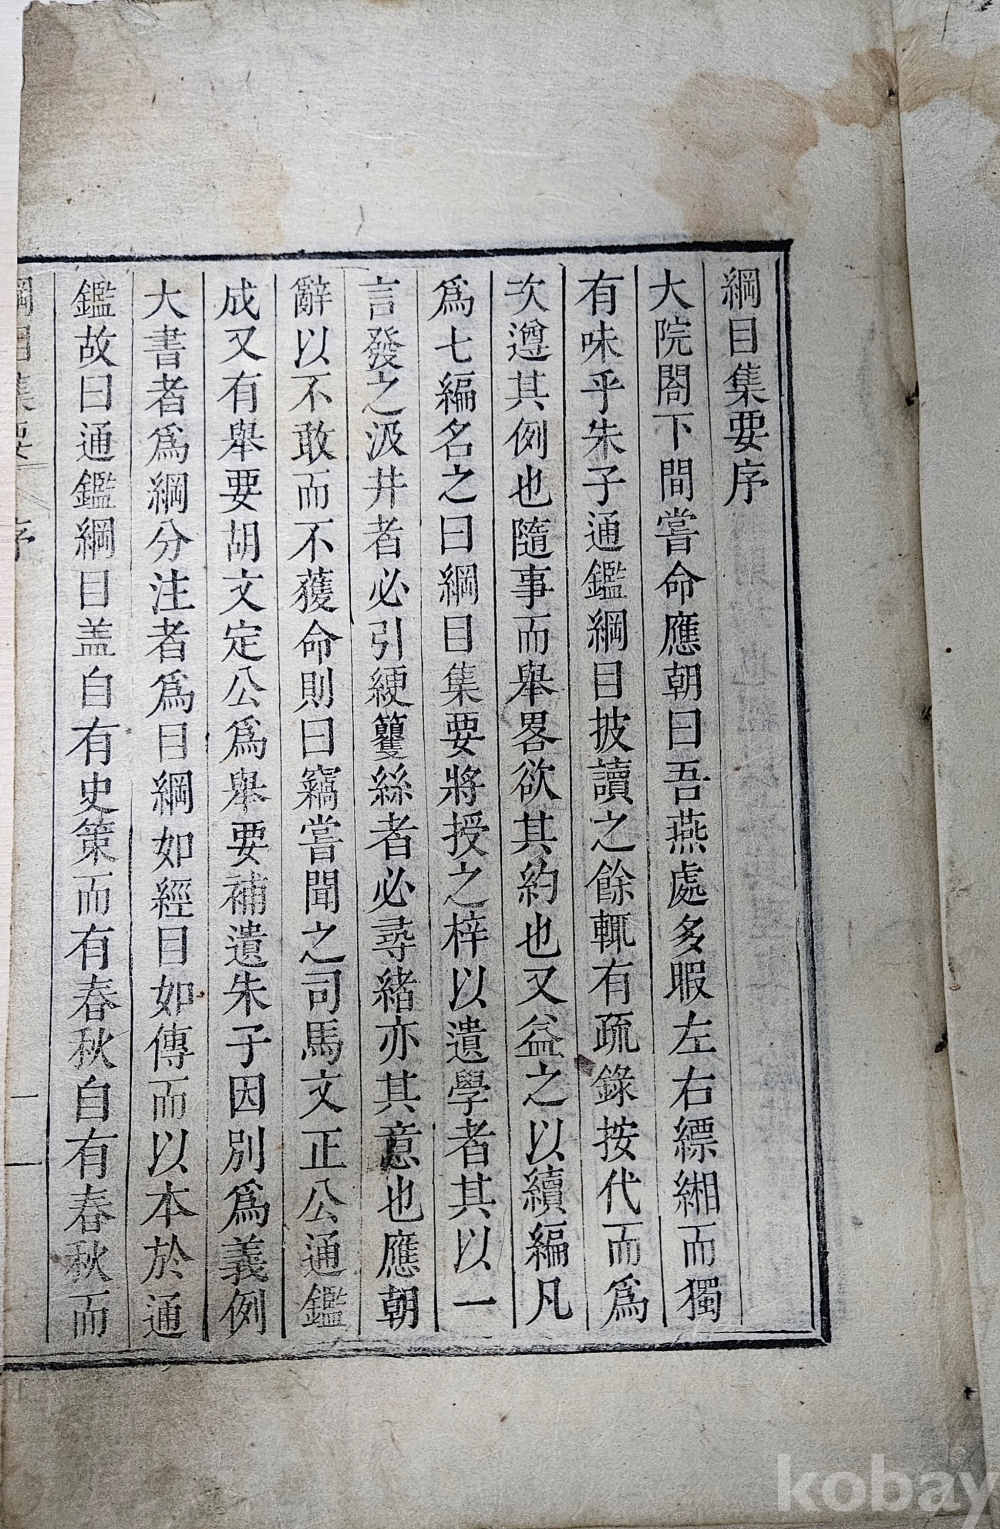 綱目集要序
大院閤下間嘗命應朝曰吾燕處多暇左右縹緗而獨
有味乎朱子通鑑綱目披讀之餘輒有疏錄按代而爲
次遵其例也隨事而舉畧欲其約也又益之以續編凡
爲七編名之曰綱目集要將授之梓以遺學者其以一
言發之汲井者必引綆籰絲者必尋緒亦其意也應朝
辭以不敢而不獲命則曰竊嘗聞之司馬文正公通鑑
成又有舉要胡文定公爲舉要補遺朱子因別爲義例
大書者爲綱分注者爲目綱如經目如傳而以本於通
鑑故曰通鑑綱目盖自有史策而有春秋自有春秋而
綱目集要 序 一
kobay